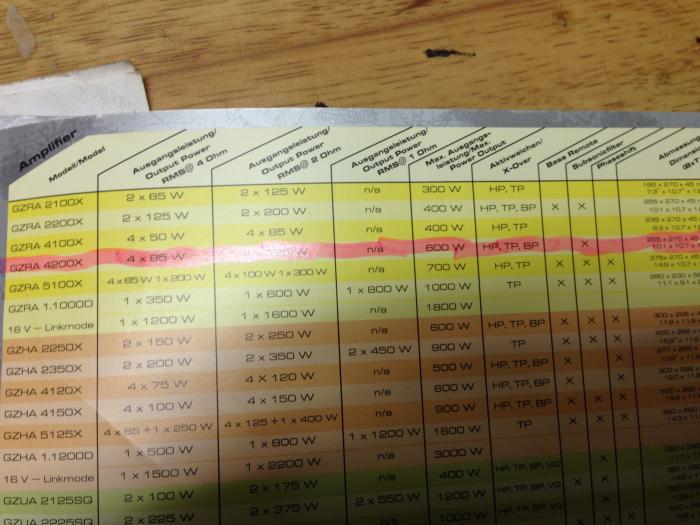 Amplifier
Modell/Model
Ausgangsleistung/
Output Power
RMS@ 4 Ohm
Ausgangsleistung/
Output Power
RMS@ 2 Ohm
Ausgangsleistung/
Output Power
RMS@ 1 Ohm
Max. Ausgangs-
leistung/Max.
Power Output
Aktivweichen/
X-Over
Bass Remote
Subsonicfilter
Phaseshift
Abmessung
GZRA 2100X 2 x 85 W 2 x 125 W n/a 300 W HP, TP
GZRA 2200X 2 x 125 W 2 x 200 W n/a 400 W HP, TP, BP x x
GZRA 4100X 4 x 50 W 4 x 85 W n/a 400 W HP, TP
GZRA 4200X 4 x 85 W n/a 600 W HP, TP, BP x
GZRA 5100X 4 x 65 W 1 x 200 W 4 x 100 W 1 x 300 W n/a 700 W HP, TP x x x
GZRA 1.1000D 1 x 350 W 1 x 600 W 1 x 800 W 1000 W TP x x x
16 V – Linkmode 1 x 1200 W 1 x 1600 W n/a 1800 W
GZHA 2250X 2 x 150 W 2 x 250 W n/a 600 W HP, TP, BP x x x
GZHA 2350X 2 x 200 W 2 x 350 W 2 x 450 W 900 W TP x x x
GZHA 4120X 4 x 75 W 4 X 120 W n/a 500 W HP, TP, BP x x
GZHA 4150X 4 x 100 W 4 x 150 W n/a 600 W HP, TP, BP x x
GZHA 5125X 4 x 85 + 1 x 250 W 4 x 125 + 1 x 400 W n/a 900 W HP, TP, BP x x x
GZHA 1.1200D 1 x 500 W 1 x 800 W 1 x 1200 W 1600 W TP x x x
16 V – Linkmode 1 x 1500 W 1 x 2200 W n/a 3000 W
GZUA 2125SQ 2 x 100 W 2 x 175 W n/a 400 W HP, TP, BP, VQ x
GZUA 2225SQ 2 x 225 W 2 x 375 W 2 x 550 W 1200 W HP, TP, BP, VQ x
1000 W